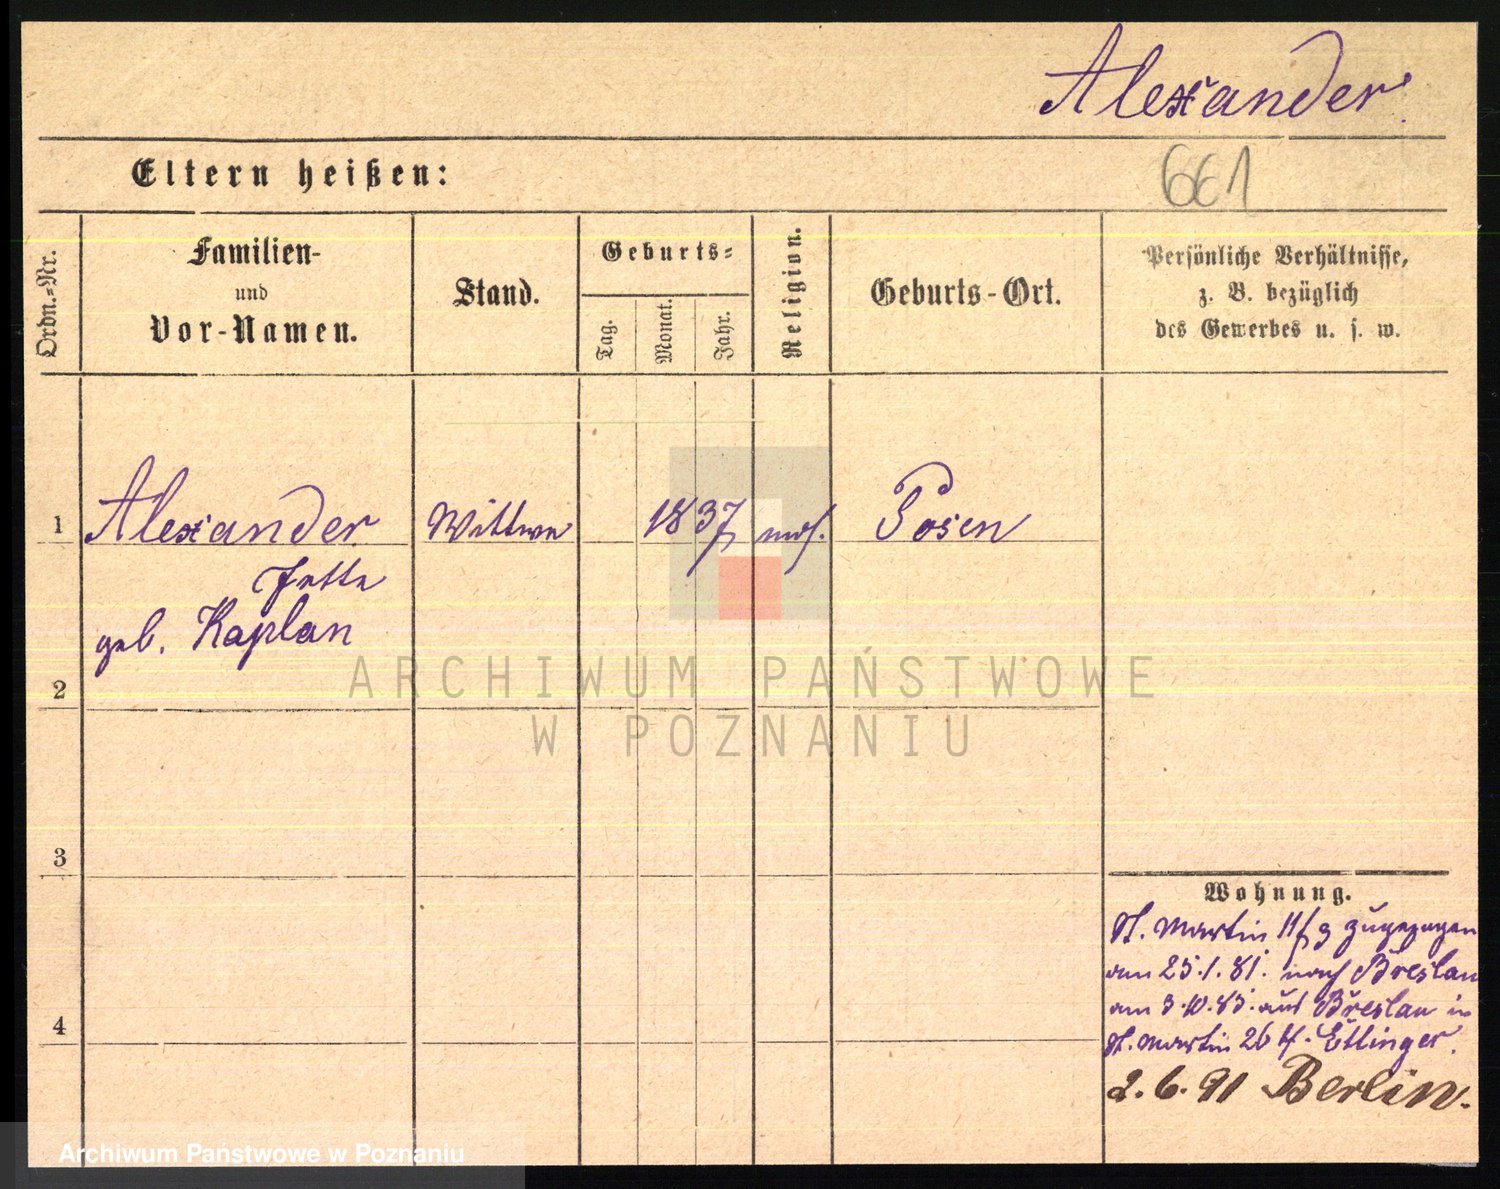 Alexander.
Eltern heißen:
661
Ordn.-Nr.
Familien-
und
Vor-Namen.
Stand.
Geburts-
Tag.
Monat.
Jahr.
Religion.
Geburts-Ort.
Persönliche Verhältnisse,
z. B. bezüglich
des Gewerbes u. s. w.
1
Alexander
Wittwe
1837
mos.
Posen
Jette
geb. Kaplan
2
ARCHIWUM PAŃSTWOWE
W POZNANIU
3
Wohnung.
St. Martin 11/ zugezogen
am 25.1.81. nach Breslau
am 3.10.83. aus Breslau in
St. Martin 26 Ettlinger.
4
2.6.91 Berlin.
Archiwum Państwowe w Poznaniu